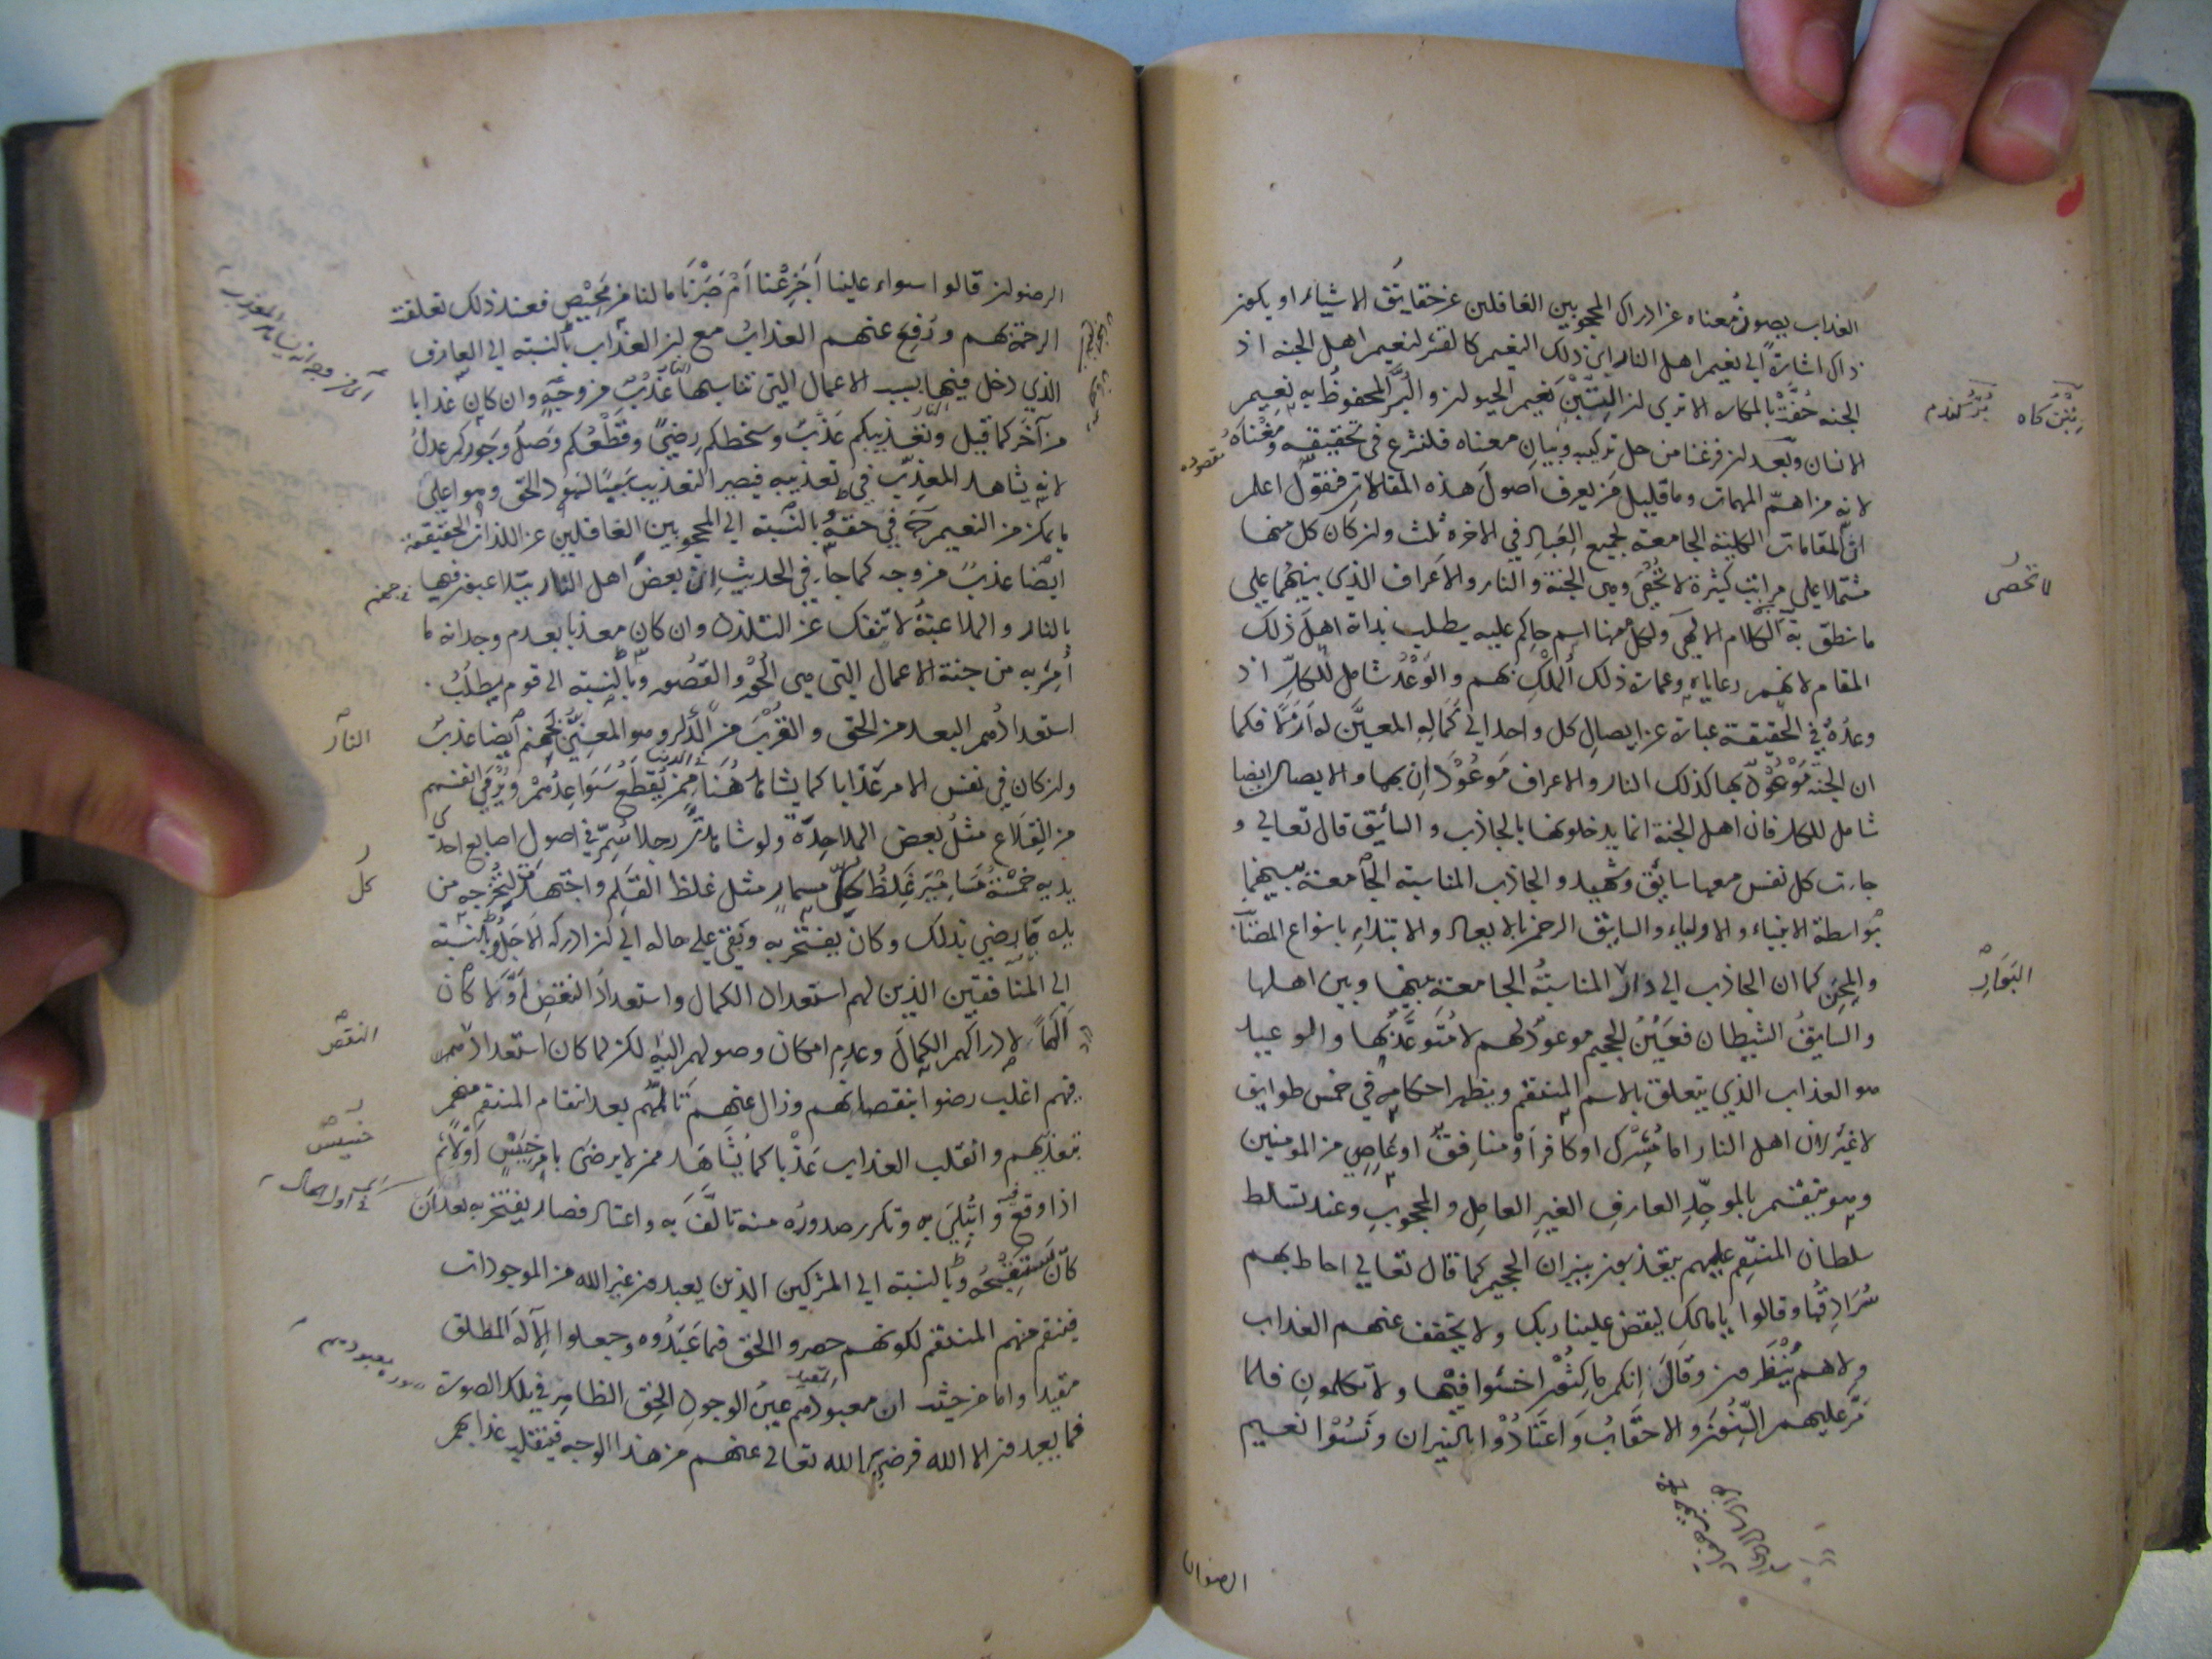 العذاب يصون معناه عن ادراك المحجوبين الغافلين عن حقايق الاشياء او يكون
ذاك اشارة الي نعيم اهل النار اي ذلك النعيم كالقشر لنعيم اهل الجنه اذ
الجنه حُفّت بالمكاره الا تري ان التبن نعيم الحيوان والبر المحفوظ به نعيم
الانسان وبعد ان فرغنا من حل تركيبه وبيان معناه فلنشرع في تحقيقه ومغناه
لانه من اهمّ المهمات وما قليل من يعرف اصول هذه المقالات فنقول اعلم
ان المقامات الكلية الجامعة لجميع العباد في الاخره ثلث وان كان كل منها
مشتملا علي مراتب كثيرة لا تحصي وهي الجنة والنار والاعراف الذي بينهما علي
ما نطق به الكلام الالهي ولكل منها اسم حاكم عليه يطلب بذاته اهل ذلك
المقام لانهم رعاياه وعمارة ذلك الملك بهم والوعد شامل للكل اذ
وعده في الحقيقة عبارة عن ايصال كل واحد الي كماله المعيّن له ازلا فكما
ان الجنة موعود بها كذلك النار والاعراف موعود ان بها والايصال ايضا
شامل للكل فان اهل الجنة انما يدخلونها بالجاذب والسائق قال تعالي و
جاءت كل نفس معها سايق وشهيد والجاذب المناسبة الجامعة بينهما
بواسطة الانبياء والاولياء والسايق الرحمن بالايعاد والابتلاء بانواع المصائب
والمحن كما ان الجاذب الي دار المناسبة الجامعة بينها وبين اهلها
والسايق الشيطان فعين الجحيم موعود لهم لا متوعد بها والوعيد
هو العذاب الذي يتعلق بالاسم المنتقم ويظهر احكامه في خمس طوايف
لا غير لان اهل النار اما مشرك او كافر او منافق او عاصي من المومنين
وهو ينقسم بالموحّد العارف الغير العامل والمحجوب وعند تسلط
سلطان المنتقم عليهم يتعذبون بنيران الجحيم كما قال تعالي احاط بهم
سُرادقها وقالوا يا مالك ليقض علينا ربك ولا يخفف عنهم العذاب
ولا هم ينظرون وقال انكم ماكثون اخسئوا فيها ولا تكلمون فلما
مرّ عليهم السنون والاحقاب واعتادوا بالنيران ونسوا نعيم
تبن كاه
بر گندم
مقصوده
لا تحصى
البوار
الرضوان
الرضوان قالوا سواء علينا أجزعنا أم صبرنا ما لنا من محيص فعند ذلك تعلقت
الرحمة بهم ورفع عنهم العذاب مع ان العذاب بالنسبة الي العارف
الذي دخل فيها بسبب الاعمال التي تناسبها عذب من وجه وان كان عذابا
من آخر كما قيل وتعذيبكم عذب وسخطكم رضي وقطعكم وصل وجوركم عدل
لانه يشاهد المعذّب في تعذيبه فيصير التعذيب سببا لشهود الحق وهو اعلي
ما يمكن من النعيم ح في حقه وبالنسبة الي المحجوبين الغافلين عن اللذات الحقيقة
ايضا عذب من وجه كما جاء في الحديث ان بعض اهل النار يتلاعبون فيها
بالنار والملاعبة لا تنفك عن التلذذ وان كان معذبا بعدم وجدانه ما
أُمر به من جنة الاعمال التي هي الحور والقصور وبالنسبة الي قوم يطلب
استعدادهم البعد من الحق والقرب من النار وهو المعنيّ بجهنم ايضا عذب
وان كان في نفس الامر عذابا كما يشاهد هنا ممن يقطع سواعدهم ويرمي انفسهم
من القلاع مثل بعض الملاحدة ولو شاهدت رجلا سُمّر في اصول اصابع احدي
يديه خمسة مسامير غلظ كل مسمار مثل غلظ القلم واجتهدت ليخرجه من
يده ما رضي بذلك وكان يفتخر به وبقي علي حاله الي ان ادركه الاجل وبالنسبة
الي المنافقين الذين لهم استعداد الكمال واستعداد النقص
لادراكهم الكمال وعدم امكان وصولهم اليه لكن لما كان استعدادهم
فيهم اغلب رضوا بنقصانهم وزال عنهم تألمهم بعد انتقام المنتقم منهم
بتعذيبهم وانقلب العذاب عذبا كما يشاهد ممن لا يرضى بامر خسيس اولا ثم
اذا وقع وابتلي به وتكرر صدوره منه تألف به واعتاد فصار يفتخر به بعد ان
كان يستقبحه وبالنسبة الي المشركين الذين يعبدون غير الله من الموجودات
فينتقم منهم المنتقم لكونهم حصروا الحق فيما عبدوه وجعلوا الاله المطلق
مقيدا واما من حيث ان معبودهم عين الوجود الحق الظاهر في تلك الصورة
فما يعبدون الا الله فرضي الله تعالي عنهم من هذا الوجه فينقلب عذابهم
النار
كل
النقص
خسيس